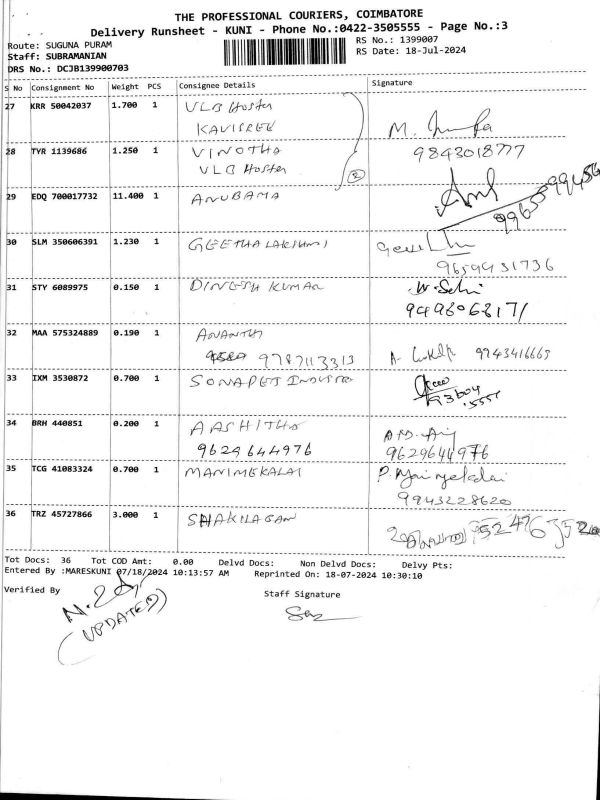 THE PROFESSIONAL COURIERS, COIMBATORE
Delivery Runsheet - KUNI - Phone No.:0422-3505555 - Page No.:3
Route: SUGUNA PURAM
Staff: SUBRAMANIAN
DRS No.: DCJB139900703
RS No.: 1399007
RS Date: 18-Jul-2024
S No Consignment No Weight PCS Consignee Details Signature
27 KRR 50042037 1.700 1 VLB Hoster
KAVISREE
28 TYR 1139686 1.250 1 VINOTHA 9843018777
VLB Hoster 2
29 EDQ 700017732 11.400 1 ANUBAMA
30 SLM 350606391 1.230 1 GEETHALAKSHMI
9659431736
31 STY 6089975 0.150 1 DINESH KUMAR
32 MAA 575324889 0.190 1 ANANTHI
9787113313 9943416663
33 IXM 3530872 0.700 1 SONAPET
34 BRH 440851 0.200 1 AASHITHA
9629644976 9629644976
35 TCG 41083324 0.700 1 MANIMEKALAI
9943228620
36 TRZ 45727866 3.000 1 SHAKILABAN
Tot Docs: 36 Tot COD Amt: 0.00 Delvd Docs: Non Delvd Docs: Delvy Pts:
Entered By :MARESKUNI 07/18/2024 10:13:57 AM Reprinted On: 18-07-2024 10:30:10
Verified By Staff Signature
(UPDATED)